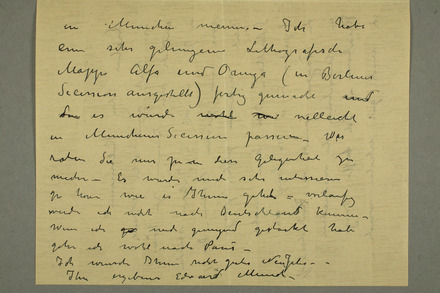 in München nennen - Ich habe
eine sehr gelungene Lithografische
Mappe Alfa und Omega (in Berliner
Secession ausgestellt) fertig gemacht und
es würde vielleicht
in Münchener Secession passen - Was
raten Sie mir zu in dieser Gelegenheit zu
- Es würde mich sehr interessieren
zu hören wie es Ihnen geht - vorläufig
werde ich nicht nach Deutschland kommen -
Wenn ich genügend gestärkt habe
gehe ich wohl nach Paris -
Ich wünsche Ihnen recht gutes Neujahr -
Ihr ergebener Edvard Munch -